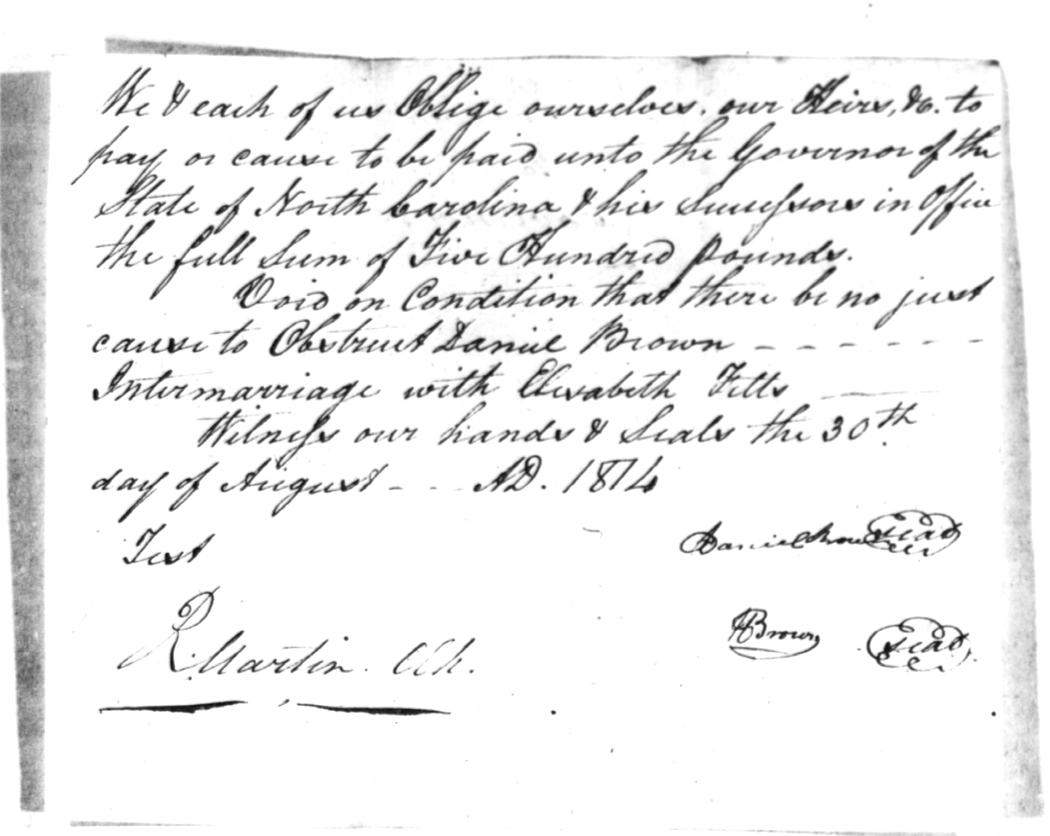 We & each of us Oblige ourselves, our Heirs, &c. to
pay or cause to be paid unto the Governor of the
State of North Carolina & his Successors in Office
the full Sum of Five Hundred pounds.
Void on Condition that there be no just
cause to Obstruct Daniel Brown - - - - - -
Intermarriage with Elisabeth Felts
Witness our hands & Seals the 30th
day of August - - AD. 1814
Test
Daniel Brown Seal
R. Martin Clk.
HBrown Seal